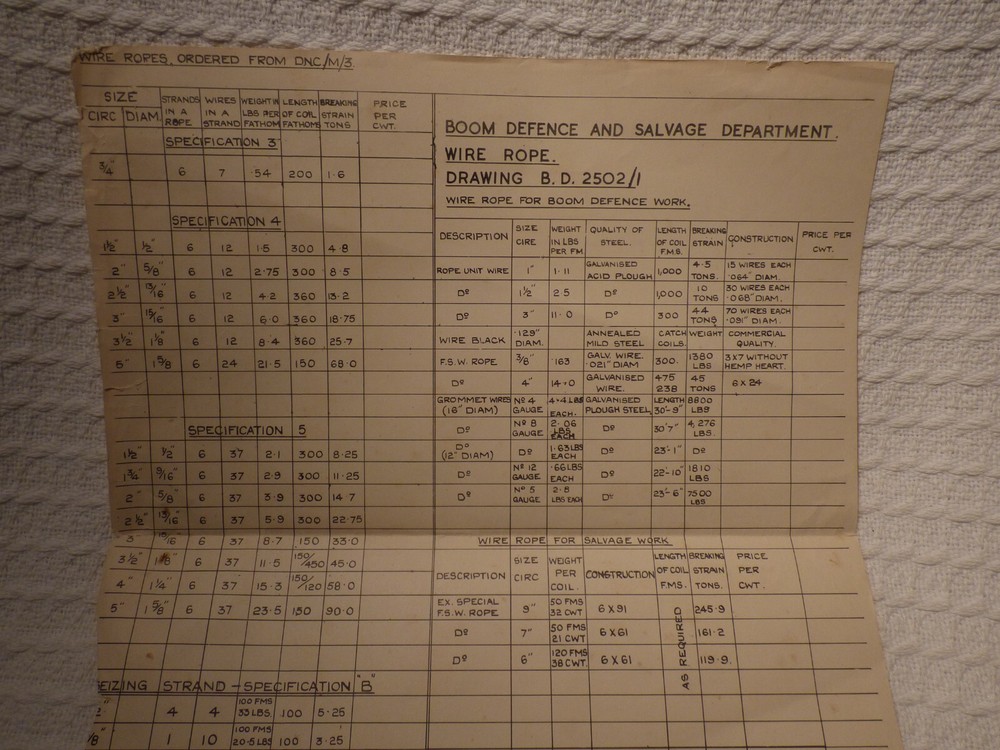 WIRE ROPES. ORDERED FROM DNC/M/3
SIZE
CIRC DIAM. STRANDS IN A ROPE WIRES IN A STRAND WEIGHT IN LBS PER FATHOM LENGTH OF COIL FATHOMS BREAKING STRAIN TONS PRICE PER CWT.
SPECIFICATION 3
3/4" 6 7 .54 200 1.6
SPECIFICATION 4
1½" ½" 6 12 1.5 300 4.8
2" 5/8" 6 12 2.75 300 8.5
2½" 13/16" 6 12 4.2 360 13.2
3" 15/16" 6 12 6.0 360 18.75
3½" 1 1/8" 6 12 8.4 360 25.7
5" 1 5/8" 6 24 21.5 150 68.0
SPECIFICATION 5
1½" ½" 6 37 2.1 300 8.25
1¾" 9/16" 6 37 2.9 300 11.25
2" 5/8" 6 37 3.9 300 14.7
2½" 13/16" 6 37 5.9 300 22.75
3" 15/16" 6 37 8.7 150 33.0
3½" 6 37 11.5 150/450 45.0
4" 1¼" 6 37 15.3 150/120 58.0
5" 1 5/8" 6 37 23.5 150 90.0
EIZING STRAND - SPECIFICATION "B"
4 4 100 FMS 33 LBS. 100 5.25
/8" 1 10 100 FMS 20.5 LBS 100 3.25
BOOM DEFENCE AND SALVAGE DEPARTMENT.
WIRE ROPE.
DRAWING B.D. 2502/1
WIRE ROPE FOR BOOM DEFENCE WORK.
DESCRIPTION SIZE CIRE WEIGHT IN LBS PER FM. QUALITY OF STEEL. LENGTH OF COIL F.M.S. BREAKING STRAIN. CONSTRUCTION PRICE PER CWT.
ROPE UNIT WIRE 1" 1.11 GALVANISED ACID PLOUGH 1,000 4.5 TONS. 15 WIRES EACH .064" DIAM.
Dº 1½" 2.5 Dº 1,000 10 TONS 30 WIRES EACH .068" DIAM.
Dº 3" 11.0 Dº 300 44 TONS 70 WIRES EACH .091" DIAM.
WIRE BLACK .129" DIAM. ANNEALED MILD STEEL CATCH WEIGHT COILS. COMMERCIAL QUALITY.
F.S.W. ROPE 3/8" .163 GALV. WIRE. .021" DIAM 300. 1380 LBS 3X7 WITHOUT HEMP HEART.
Dº 4" 14.0 GALVANISED WIRE. 475 238 45 TONS 6 X 24
GROMMET WIRES (16" DIAM) Nº 4 GAUGE 4.4 LBS EACH. GALVANISED PLOUGH STEEL LENGTH 30'-9" 8800 LBS
Dº Nº 8 GAUGE 2.06 LBS EACH Dº 30'7" 4,276 LBS.
Dº (12" DIAM) Dº 1.63 LBS EACH Dº 23'-1" Dº
Dº Nº 12 GAUGE .66 LBS EACH Dº 22'-10" 1810 LBS
Dº Nº 5 GAUGE 2.8 LBS EACH Dº 23'-6" 7500 LBS
WIRE ROPE FOR SALVAGE WORK
DESCRIPTION SIZE CIRC WEIGHT PER COIL. CONSTRUCTION LENGTH OF COIL F.M.S. BREAKING STRAIN TONS. PRICE PER CWT.
EX. SPECIAL F.S.W. ROPE 9" 50 FMS 32 CWT 6 X 91 AS REQUIRED 245.9
Dº 7" 50 FMS 21 CWT 6 X 61 161.2
Dº 6" 120 FMS 38 CWT. 6 X 61 119.9.